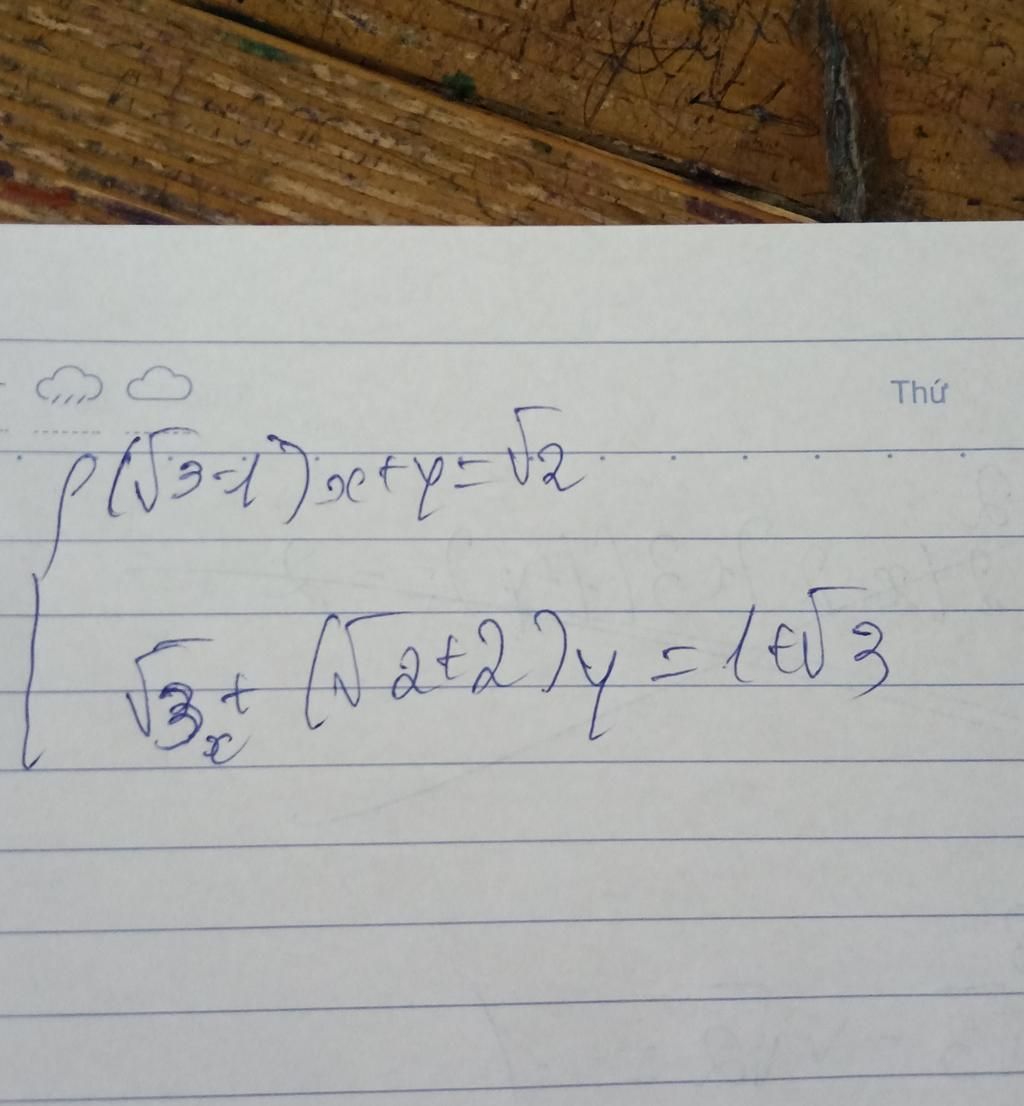 Thứ
(√3-1)x+y=√2
√3x+(√2+2)y=1+√3